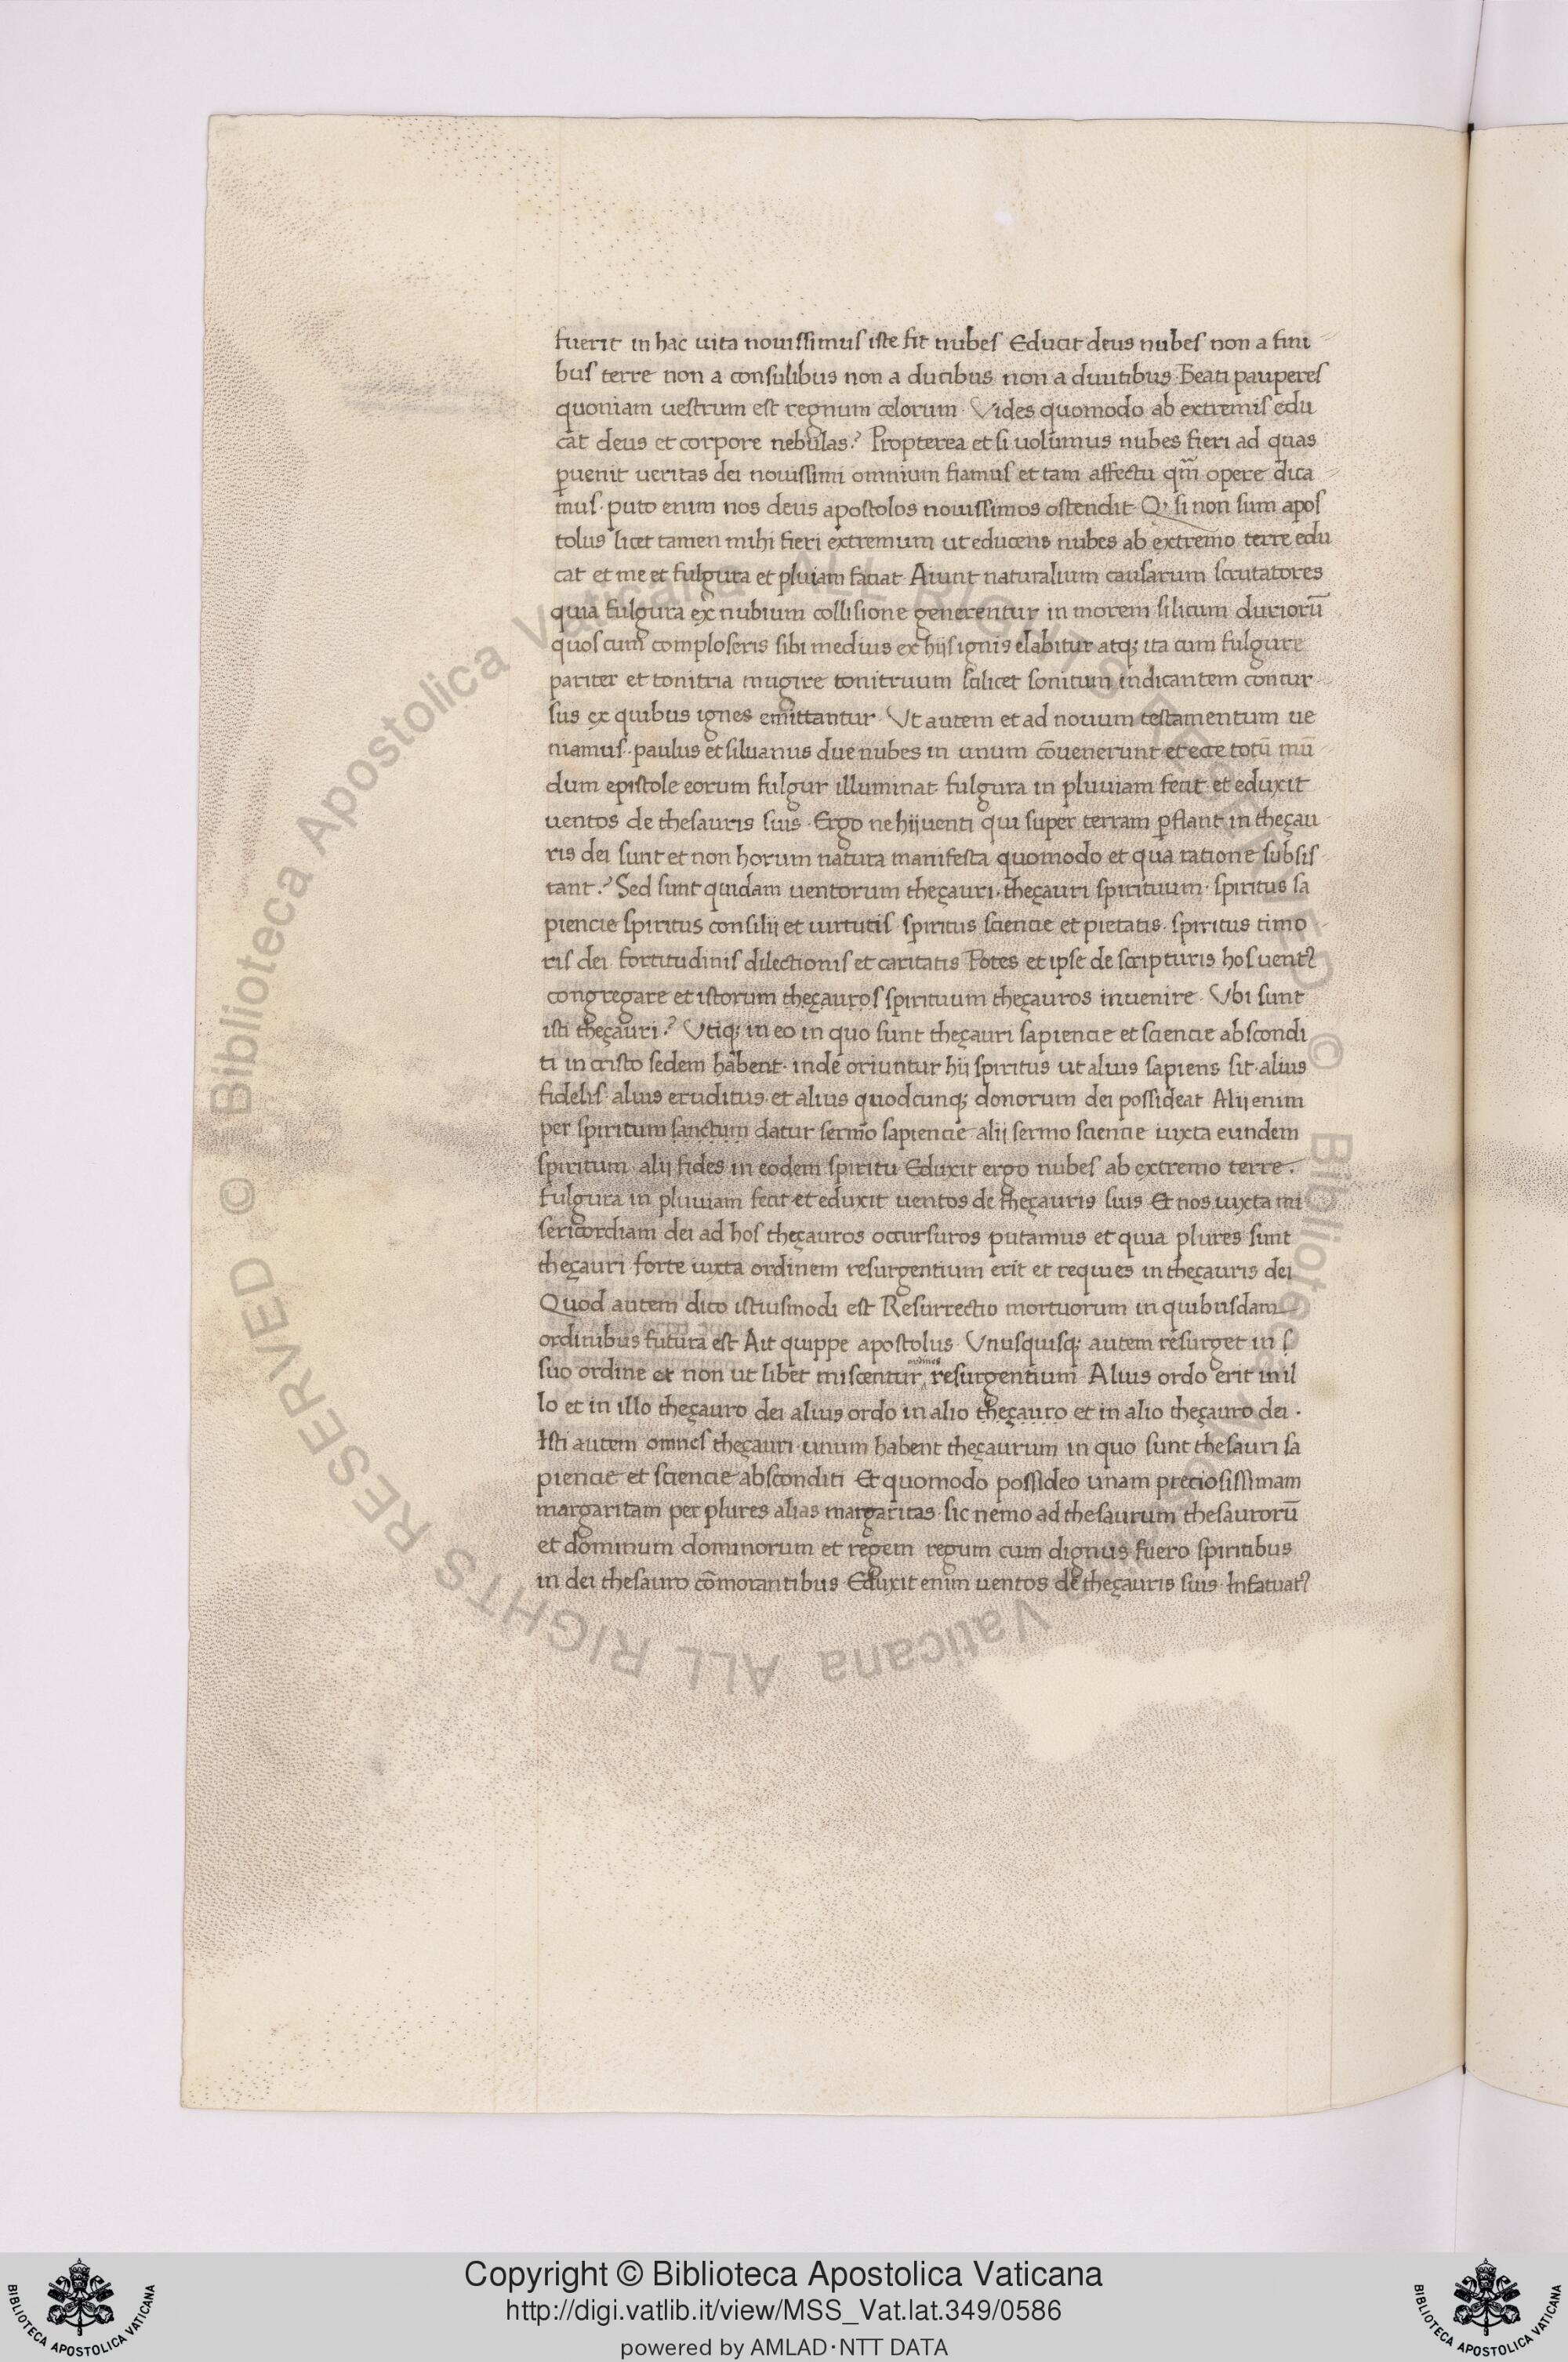 fuerit in hac uita nouissimus iste fit nubes Educit deus nubes non a fini
bus terre non a consulibus non a ducibus non a diuitibus Beati pauperes
quoniam uestrum est regnum celorum Vides quomodo ab extremis edu
cat deus et corpore nebulas? Propterea et si uolumus nubes fieri ad quas
p̱uenit ueritas dei nouissimi omnium fiamus et tam affectu qm̄ opere dica
mus · puto enim nos deus apostolos nouissimos ostendit Q si non sum apos
tolus licet tamen mihi fieri extremum ut educens nubes ab extremo terre edu
cat et me et fulgura et pluiam faciat Aiunt naturalium causarum scrutatores
quia fulgura ex nubium collisione generentur in morem silicum duriorū
quos cum comploseris sibi medius ex hijs ignis elabitur atq; ita cum fulgure
pariter et tonitria mugire tonitruum scilicet sonitum indicantem concur
sus ex quibus ignes emittantur Vt autem et ad nouum testamentum ue
niamus · paulus et siluanus due nubes in unum cōuenerunt et ecce totū mū
dum epistole eorum fulgur illuminat fulgura in pluuiam fecit et eduxit
uentos de thesauris suis · Ergo ne hij uenti qui super terram p̱flant in theçau
ris dei sunt et non horum natura manifesta quomodo et qua ratione subsis
tant? Sed sunt quidam uentorum theçauri · theçauri spirituum · spiritus sa
piencie spiritus consilij et uirtutis · spiritus sciencie et pietatis · spiritus timo
ris dei fortitudinis dilectionis et caritatis Potes et ipse de scripturis hos uent
congregare et istorum theçauros spirituum theçauros inuenire · Vbi sunt
isti theçauri? Vtiq; in eo in quo sunt theçauri sapiencie et sciencie abscondi
ti in cristo sedem habent · inde oriuntur hij spiritus ut alius sapiens sit · alius
fidelis · alius eruditus · et alius quodcunq; donorum dei possideat Alij enim
per spiritum sanctum datur sermo sapiencie alij sermo sciencie iuxta eundem
spiritum alij fides in eodem spiritu Eduxit ergo nubes ab extremo terre ·
fulgura in pluuiam fecit et eduxit uentos de theçauris suis Et nos iuxta mi
sericordiam dei ad hos theçauros occursuros putamus et quia plures sunt
theçauri forte iuxta ordinem resurgentium erit et requies in theçauris dei
Quod autem dico istiusmodi est Resurrectio mortuorum in quibusdam
ordinibus futura est Ait quippe apostolus · Vnusquisq; autem resurget in s
suo ordine et non ut libet miscentur ordines resurgentium Alius ordo erit in il
lo et in illo theçauro dei alius ordo in alio theçauro et in alio theçauro dei ·
Isti autem omnes theçauri · unum habent theçaurum in quo sunt thesauri sa
piencie et sciencie absconditi Et quomodo possideo unam preciosissimam
margaritam per plures alias margaritas · sic nemo ad thesaurum thesaurorū
et dominum dominorum et regem regum cum dignus fuero spiritibus
in dei thesauro cōmorantibus Eduxit enim uentos de theçauris suis · Infatuat
Copyright © Biblioteca Apostolica Vaticana
http://digi.vatlib.it/view/MSS_Vat.lat.349/0586
powered by AMLAD·NTT DATA
BIBLIOTECA APOSTOLICA VATICANA
BIBLIOTECA APOSTOLICA VATICANA
© Biblioteca Apostolica Vaticana ALL RIGHTS RESERVED © Biblioteca Apostolica Vaticana ALL RIGHTS RESERVED